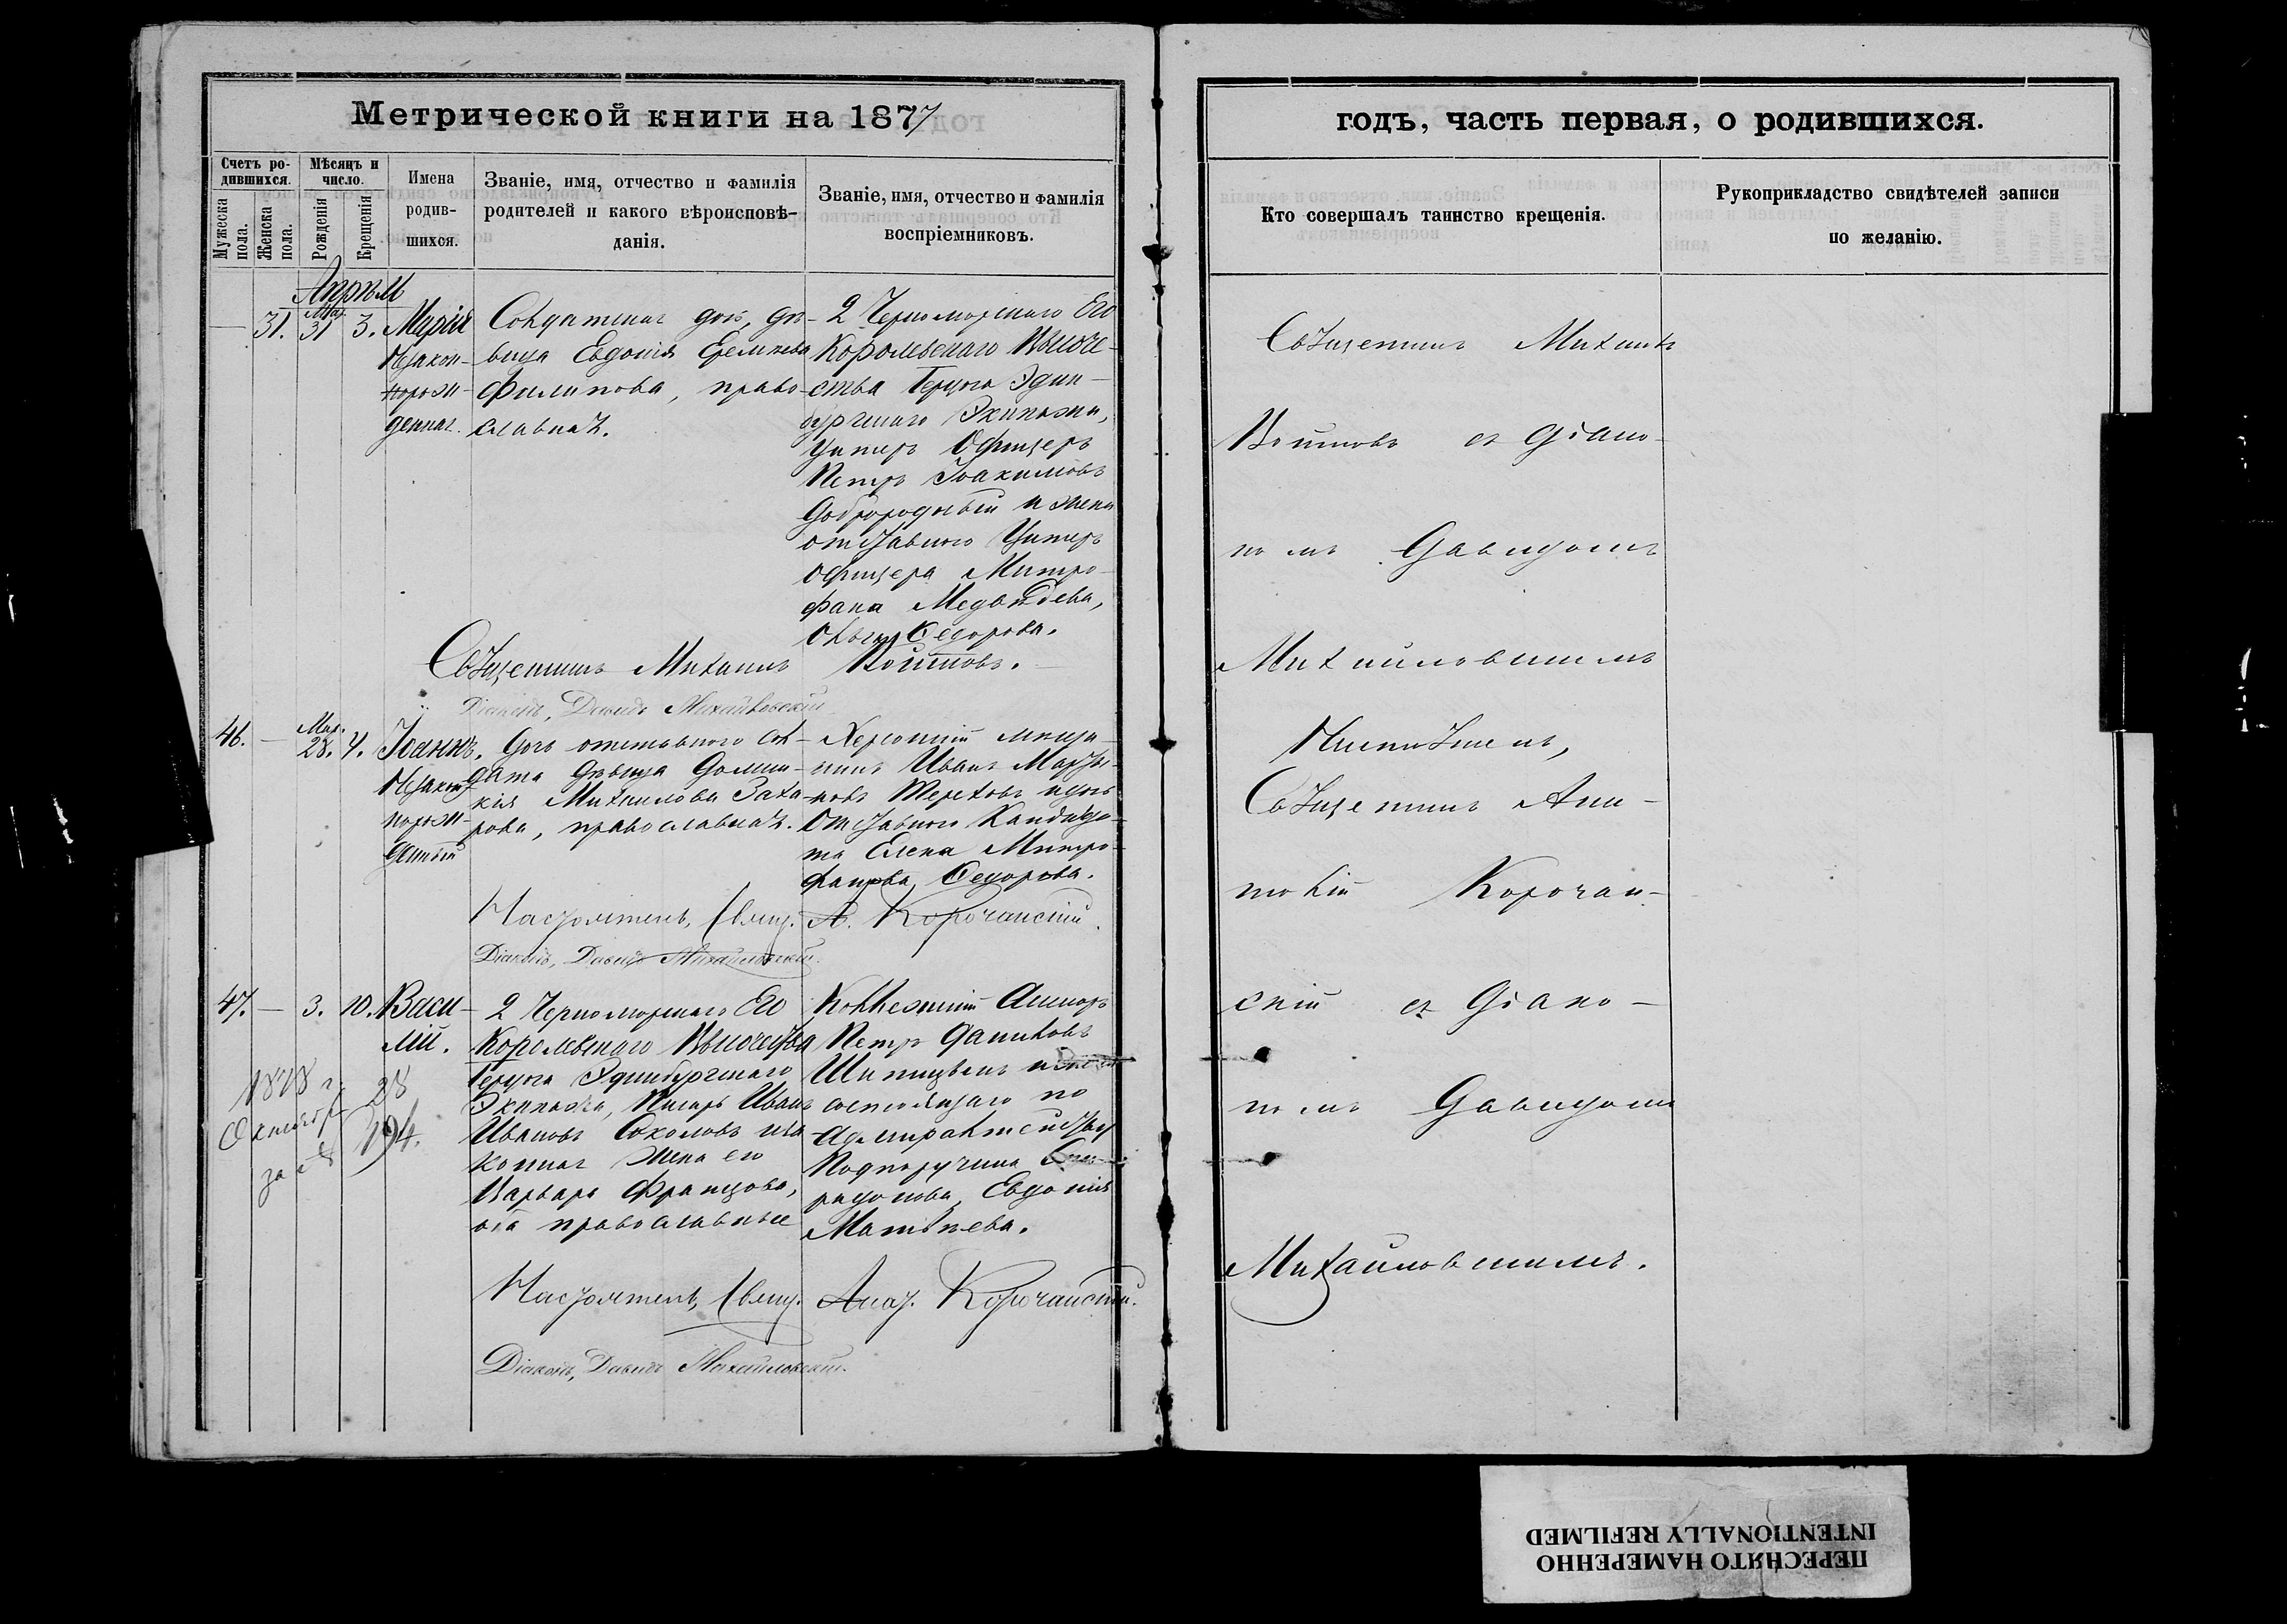 Метрической книги на 1877
Счетъ ро-
дившихся.
Мужеска
пола.
Женска
пола.
Мѣсяцъ и
число.
Рожденія
Крещенія
Имена
родив-
шихся.
Званіе, имя, отчество и фамилія
родителей и какого вѣроисповѣ-
данія.
Званіе, имя, отчество и фамилія
воспріемниковъ.
Апрѣль
— 31. Мар. 31 3. Марія
Незакон-
норож-
денная.
Солдатская дочь, дѣ-
вица Евдокія
Филипова, право-
славная.
2 Черноморскаго Его
Королевскаго Высоче-
ства Герцога Эдин-
бургскаго Экипажа,
Унтеръ Офицеръ
Петръ Іоакимовъ
и жена
отставного Унтеръ
Офицера Митро-
фана Медвѣдева,
Ольга Ѳедорова.
Священникъ Михаилъ Войтовъ.
Діаконъ, Давидъ Михайловскій
46. — Мар. 28. 4. Іоаннъ.
Незакон-
норож-
денный
Дочь отставного сол-
дата дѣвица Домни-
кія Михаилова Заха-
рова, православная.
Херсонскій мѣща-
нинъ Иванъ
новъ Тереховъ и дочь
Отставного
та Елена Митро-
фанова Ѳедорова.
Настоятель, Свящ. А. Корочанскій.
Діаконъ, Давидъ Михайловскій.
47. — 3. 10. Васи-
лій.
2 Черноморскаго Его
Королевскаго Высочества
Герцога Эдинбургскаго
Экипажа, Писарь Иванъ
Ивановъ Соколовъ и за-
конная жена его
Варвара Францова,
оба православные
Коллежскій Ассесоръ
Петръ Даниловъ
состоящаго по
Адмиралтейству
Подпоручика
Евдокія
Матвѣева.
1878 г.
Октября 28
за № 194.
Настоятель, Свящ. Анат. Корочанскій.
Діаконъ, Давидъ Михайловскій.
годъ, часть первая, о родившихся.
Кто совершалъ таинство крещенія.
Рукоприкладство свидѣтелей записи
по желанію.
Священникъ Михаилъ
Войтовъ съ Діако-
номъ Давидомъ
Михайловскимъ
Священникъ Ана-
толій Корочан-
скій съ Діако-
номъ Давидомъ
Михайловскимъ.
ПЕРЕСНЯТО НАМЕРЕННО
INTENTIONALLY REFILMED